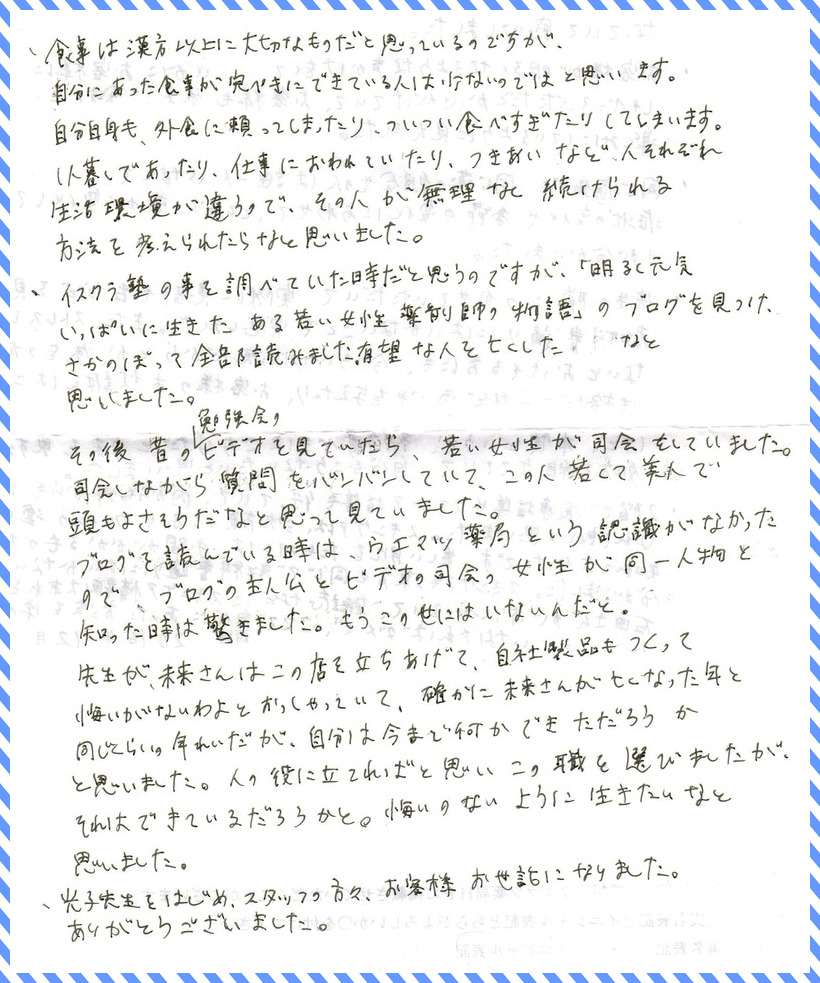 、食事は漢方以上に大切なものだと思っているのですが、
自分にあった食事が完ぺきにできている人は少ないのではと思います。
自分自身も、外食に頼ってしまったり、ついつい食べすぎたりしてしまいます。
1人暮しであったり、仕事におわれていたり、つきあいなど、人それぞれ
生活環境が違うので、その人が無理なく続けられる
方法を考えられたらなと思いました。
、イスクラ塾の事を調べていた時だと思うのですが、「明るく元気
いっぱいに生きたある若い女性薬剤師の物語」のブログを見つけ、
さかのぼって全部読みました。有望な人を亡くしたなと
思いました。
勉強会の
その後昔のビデオを見ていたら、若い女性が司会をしていました。
司会しながら質問をバンバンしていて、この人若くて美人で
頭もよさそうだなと思って見ていました。
ブログを読んでいる時は、ウエマツ薬局という認識がなかった
ので、ブログの主人公とビデオの司会の女性が同一人物と
知った時は驚きました。もうこの世にはいないんだと。
先生が、未来さんはこの店を立ちあげて、自社製品もつくって
悔いがないわよとおっしゃっていて、確かに未来さんが亡くなった年と
同じくらいの年れいだが、自分は今まで何かできただろうか
と思いました。人の役に立てればと思いこの職を選びましたが、
それはできているだろうかと。悔いのないように生きたいなと
思いました。
、光子先生をはじめ、スタッフの方々、お客様お世話になりました。
ありがとうございました。